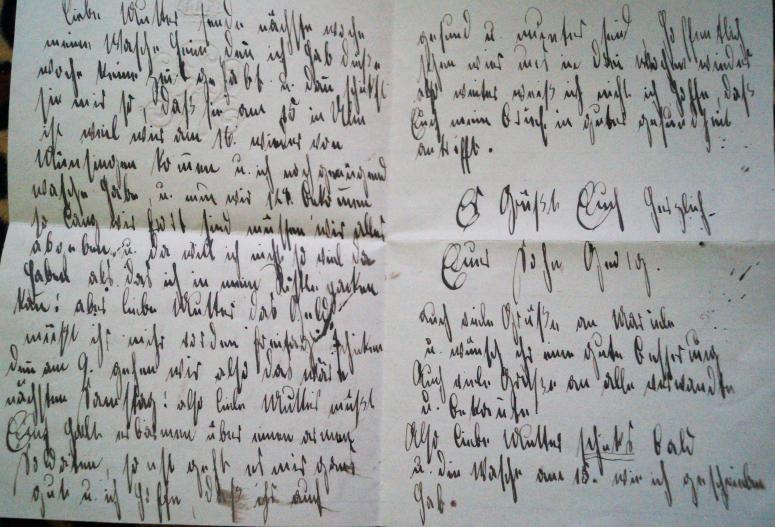 liebe Mutter sende nächste woche
meine Wasche heim den ich hab diese
woche keine zeit gehabt u. dan schükst
sie mir so, daß sie am 15 in Ulm
ist weil wir am 16. wieder von
Münsingen komen u. ich noch genügend
wasche habe, u. nun wir bekomen
so lang wir fort sind müssen wir alles
abgeben u. da will ich nicht so viel da
haben als das ich in mein Köffle packen
kan! aber liebe Mutter das Geld
müßt ihr mir vor den freitag schiken
den am 9. gehen wir also das wäre
nächsten Samstag! also liebe Mutter müßt
Euch halt erbarmen über einen armen
Soldaten, sonst geht es mir ganz
gut u. ich hoffe, daß ihr auch
gesund u. munter seid Hoffentlich
sehen wir uns in drei wochen wieder
also weiter weiß ich nicht ich hoffe, daß
Euch mein Brief in guter gesundheit
antrifft.
Es Grüßt Euch Herzlich
Euer Sohn Georg.
auch viele Grüße an Marie
u. wünsch ihr eine gute Besserung
Auch viele Grüße an alle verwandte
u. bekante
Also liebe Mutter schüks bald
u. die Wasche am 15. wie ich geschrieben
hab.